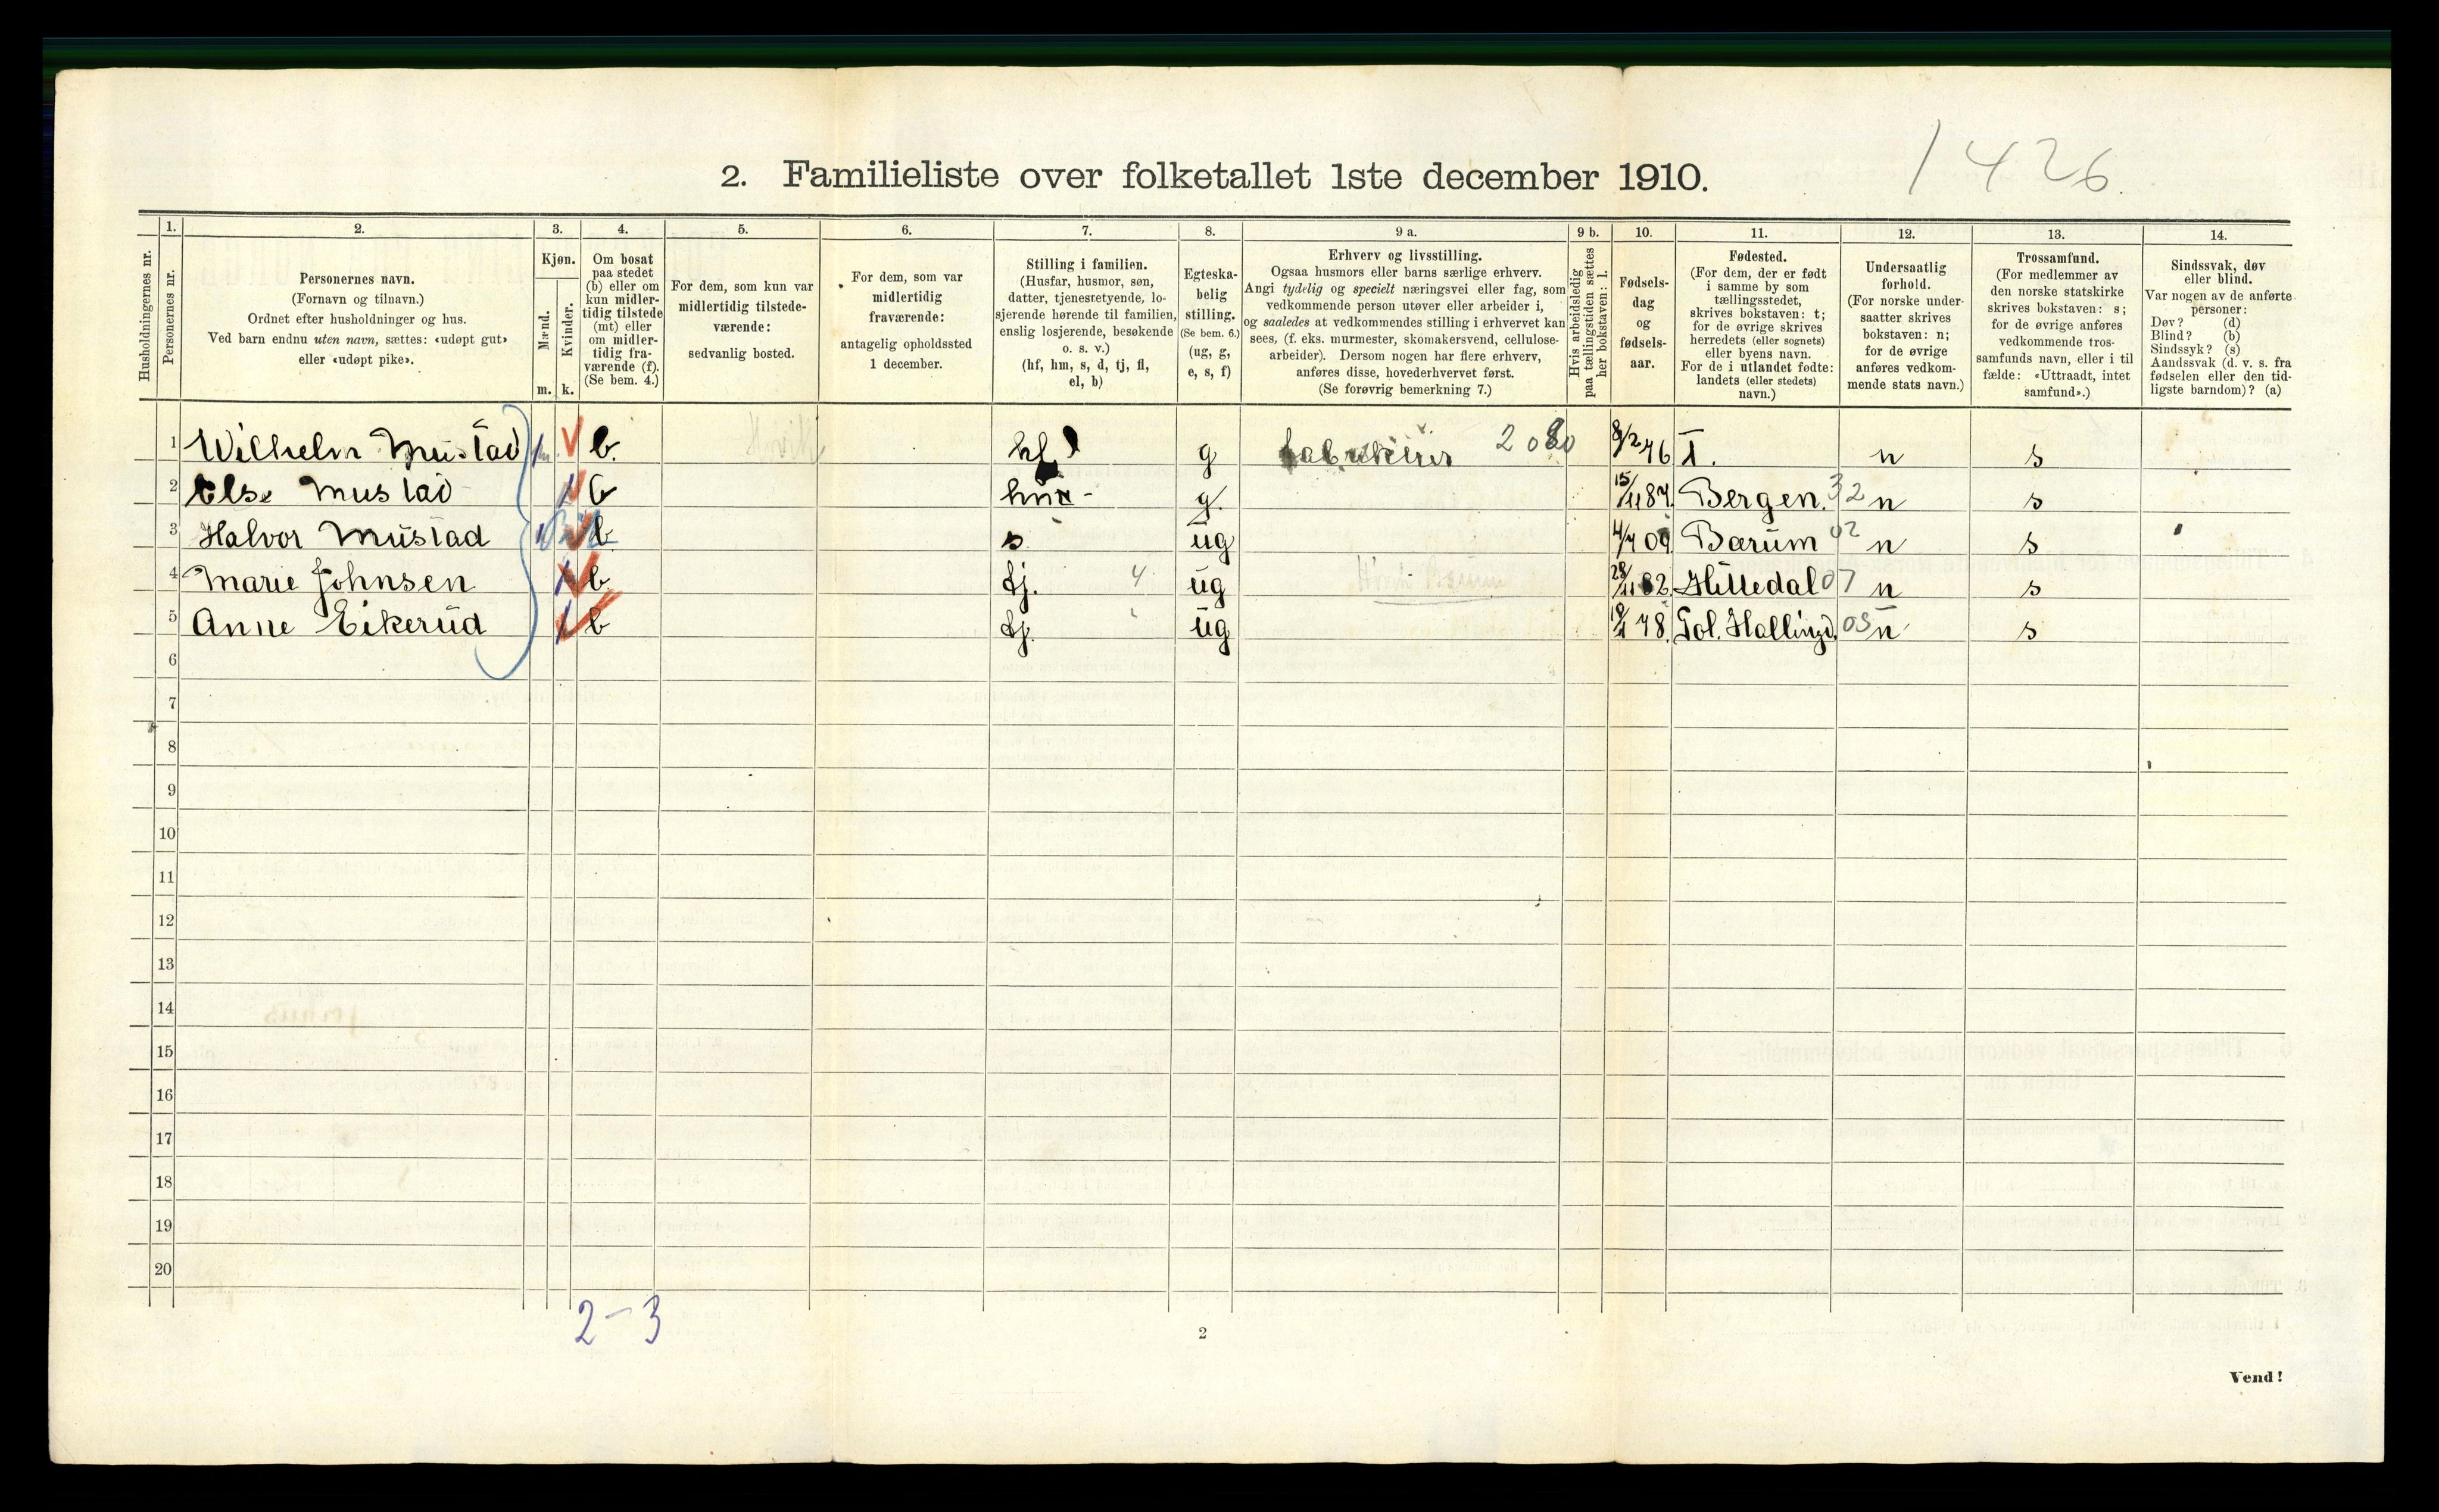 1426.
2. Familieliste over folketallet 1ste december 1910.
Husholdningernes nr.
1.
Personernes nr.
2.
Personernes navn.
(Fornavn og tilnavn.)
Ordnet efter husholdninger og hus.
Ved barn endnu uten navn, sættes: «udøpt gut»
eller «udøpt pike».
3.
Kjøn.
Mænd.
Kvinder.
m. k.
4.
Om bosat
paa stedet
(b) eller om
kun midler-
tidig tilstede
(mt) eller
om midler-
tidig fra-
værende (f).
(Se bem. 4.)
5.
For dem, som kun var
midlertidig tilstede-
værende:
sedvanlig bosted.
6.
For dem, som var
midlertidig
fraværende:
antagelig opholdssted
1 december.
7.
Stilling i familien.
(Husfar, husmor, søn,
datter, tjenestetyende, lo-
sjerende hørende til familien,
enslig losjerende, besøkende
o. s. v.)
(hf, hm, s, d, tj, fl,
el, b)
8.
Egteska-
belig
stilling.
(Se bem. 6.)
(ug, g,
e, s, f)
9 a.
Erhverv og livsstilling.
Ogsaa husmors eller barns særlige erhverv.
Angi tydelig og specielt næringsvei eller fag, som
vedkommende person utøver eller arbeider i,
og saaledes at vedkommendes stilling i erhvervet kan
sees, (f. eks. murmester, skomakersvend, cellulose-
arbeider). Dersom nogen har flere erhverv,
anføres disse, hovederhvervet først.
(Se forøvrig bemerkning 7.)
9 b.
Hvis arbeidsledig
paa tællingstiden sættes
her bokstaven: l.
10.
Fødsels-
dag
og
fødsels-
aar.
11.
Fødested.
(For dem, der er født
i samme by som
tællingsstedet,
skrives bokstaven: t;
for de øvrige skrives
herredets (eller sognets)
eller byens navn.
For de i utlandet fødte:
landets (eller stedets)
navn.)
12.
Undersaatlig
forhold.
(For norske under-
saatter skrives
bokstaven: n;
for de øvrige
anføres vedkom-
mende stats navn.)
13.
Trossamfund.
(For medlemmer av
den norske statskirke
skrives bokstaven: s;
for de øvrige anføres
vedkommende tros-
samfunds navn, eller i til
fælde: «Uttraadt, intet
samfund».)
14.
Sindssvak, døv
eller blind.
Var nogen av de anførte
personer:
Døv? (d)
Blind? (b)
Sindssyk? (s)
Aandssvak (d. v. s. fra
fødselen eller den tid-
ligste barndom)? (a)
1 Wilhelm Mustad b. hf g 8/2 T. n s
2 Else Mustad b hm - g. 15/11 87. Bergen. 32 n s
3 Halvor Mustad 1 b s ug 4/7 09 Bærum 02 n s
4 Marie Johnsen 1 b tj. 4 ug 82. Hilledal 07 n s
5 Anne Eikerud 1 b tj. ug 78. Gol. Hallingd. n s
6
7
8
9
10
11
12
13
14
15
16
17
18
19
20
2-3
2
Vend!